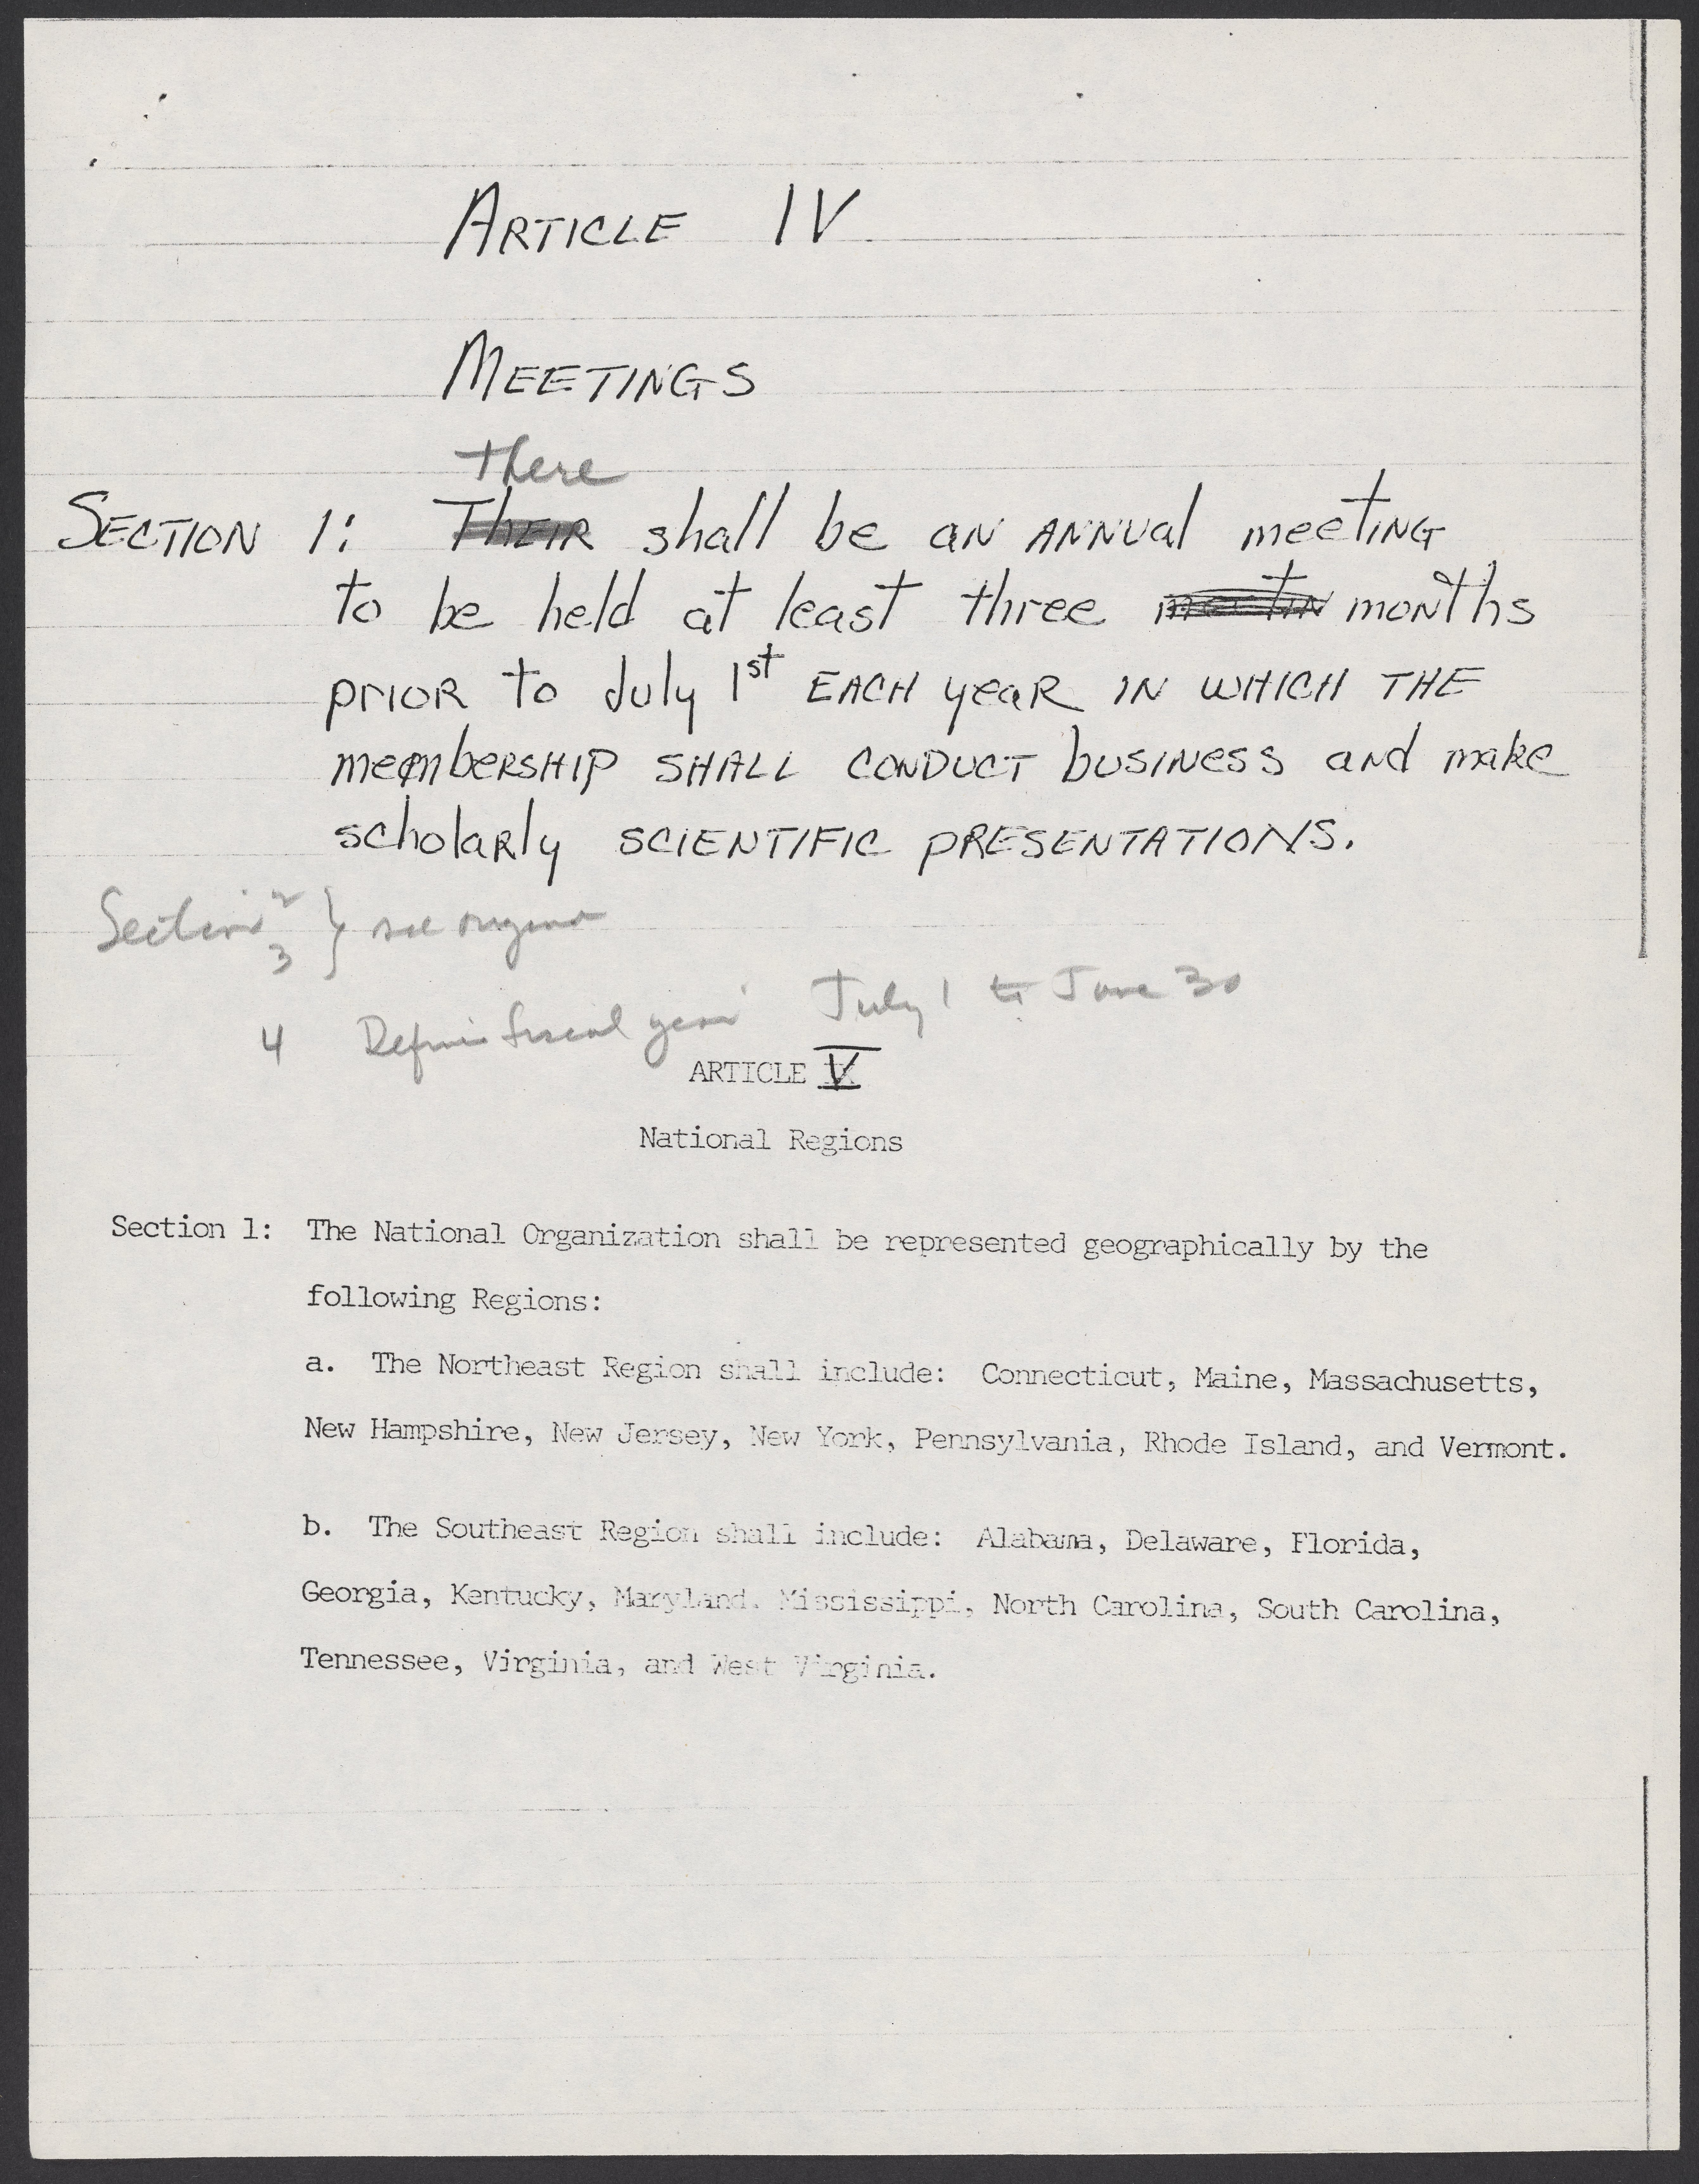 ARTICLE IV
MEETINGS
there
SECTION 1: THEIR shall be an ANNUal meeting
to be held at least three meetin months
prior to July 1st EACH year IN WHICH THE
membership SHALL CONDUCT business and make
scholarly SCIENTIFIC PRESENTATIONS.
Section 2
3 } see original
4 Define fiscal year July 1 to June 30
ARTICLE V
National Regions
Section 1: The National Organization shall be represented geographically by the
following Regions:
a. The Northeast Region shall include: Connecticut, Maine, Massachusetts,
New Hampshire, New Jersey, New York, Pennsylvania, Rhode Island, and Vermont.
b. The Southeast Region shall include: Alabama, Delaware, Florida,
Georgia, Kentucky, Maryland. Mississippi, North Carolina, South Carolina,
Tennessee, Virginia, and West Virginia.